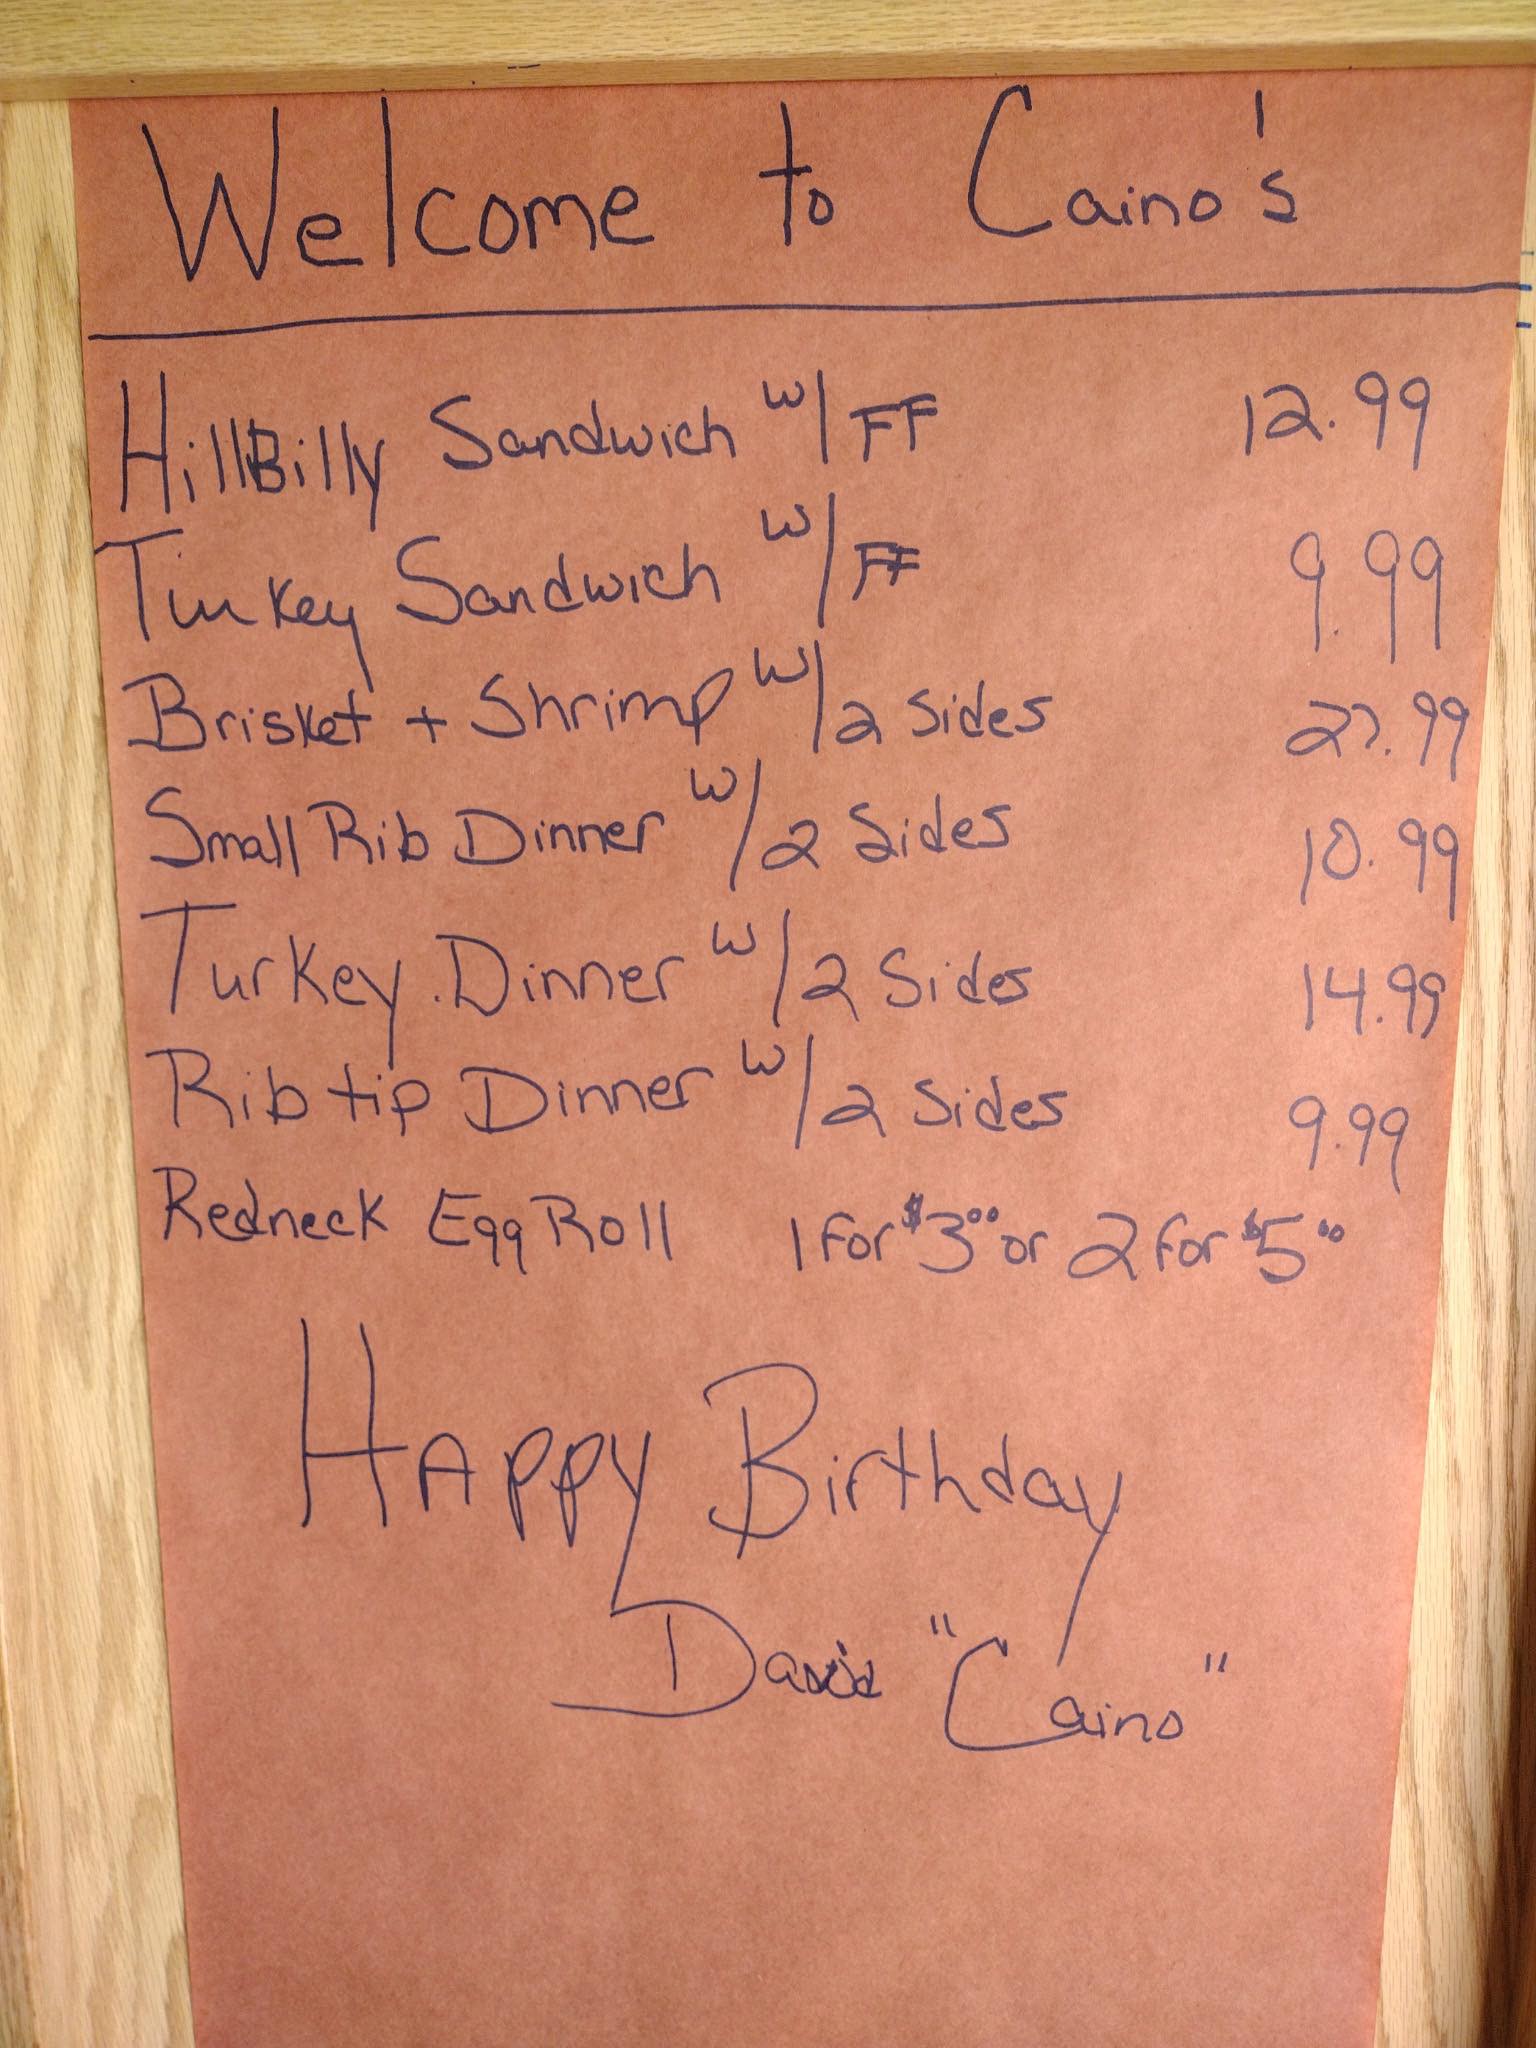 Welcome to Caino's
HillBilly Sandwich w/FF 12.99
Turkey Sandwich w/FF 9.99
Brisket + Shrimp w/2 Sides 27.99
Small Rib Dinner w/2 Sides 10.99
Turkey Dinner w/2 Sides 14.99
Rib tip Dinner w/2 Sides 9.99
Redneck Egg Roll 1 for $3.00 or 2 for $5.00
HAppy Birthday
David "Caino"